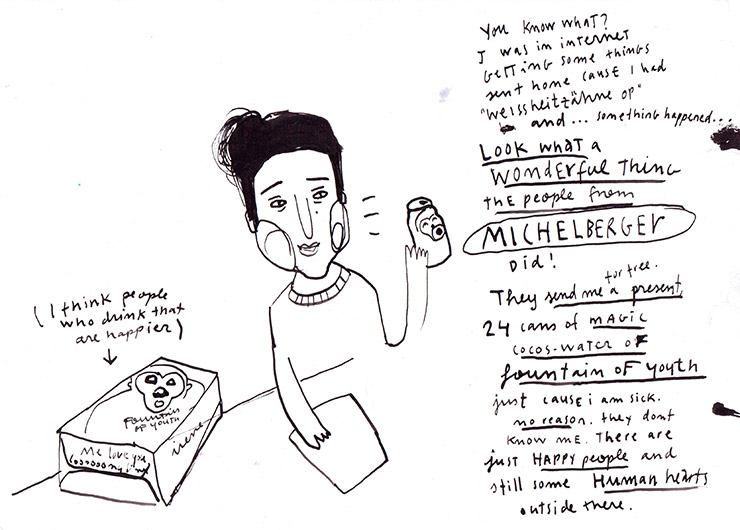 You know what?
I was in internet
getting some things
sent home cause I had
"Weissheitzähne op"
and... something happened...
Look what a
wonderful thing
the people from
MICHELBERGER
did!
for free.
They send me a present,
24 cans of magic
cocos-water of
fountain of youth
just cause i am sick.
no reason. they dont
know me. There are
just HAPPY people and
still some Human hearts
outside there.
(I think people
who drink that
are happier)
Fountain
of youth
irene
Me love you